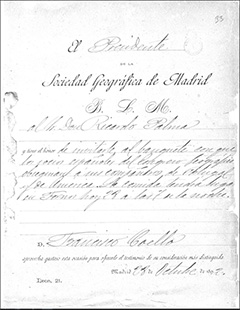 33
El Presidente
DE LA
Sociedad Geográfica de Madrid
B. L. M.
al Sr. Don Ricardo Palma
y tiene el honor de invitarle al banquete con que
los socios españoles del Congreso Geográfico
obsequian a sus compañeros de Portugal
y de America. La comida tendrá lugar
en Fornos hoy 23 a las 7 de la noche.
D. Francisco Coello
aprovecha gustoso esta ocasión para ofrecerle el testimonio de su consideración más distinguida.
Madrid 23 de Octubre de 1892.